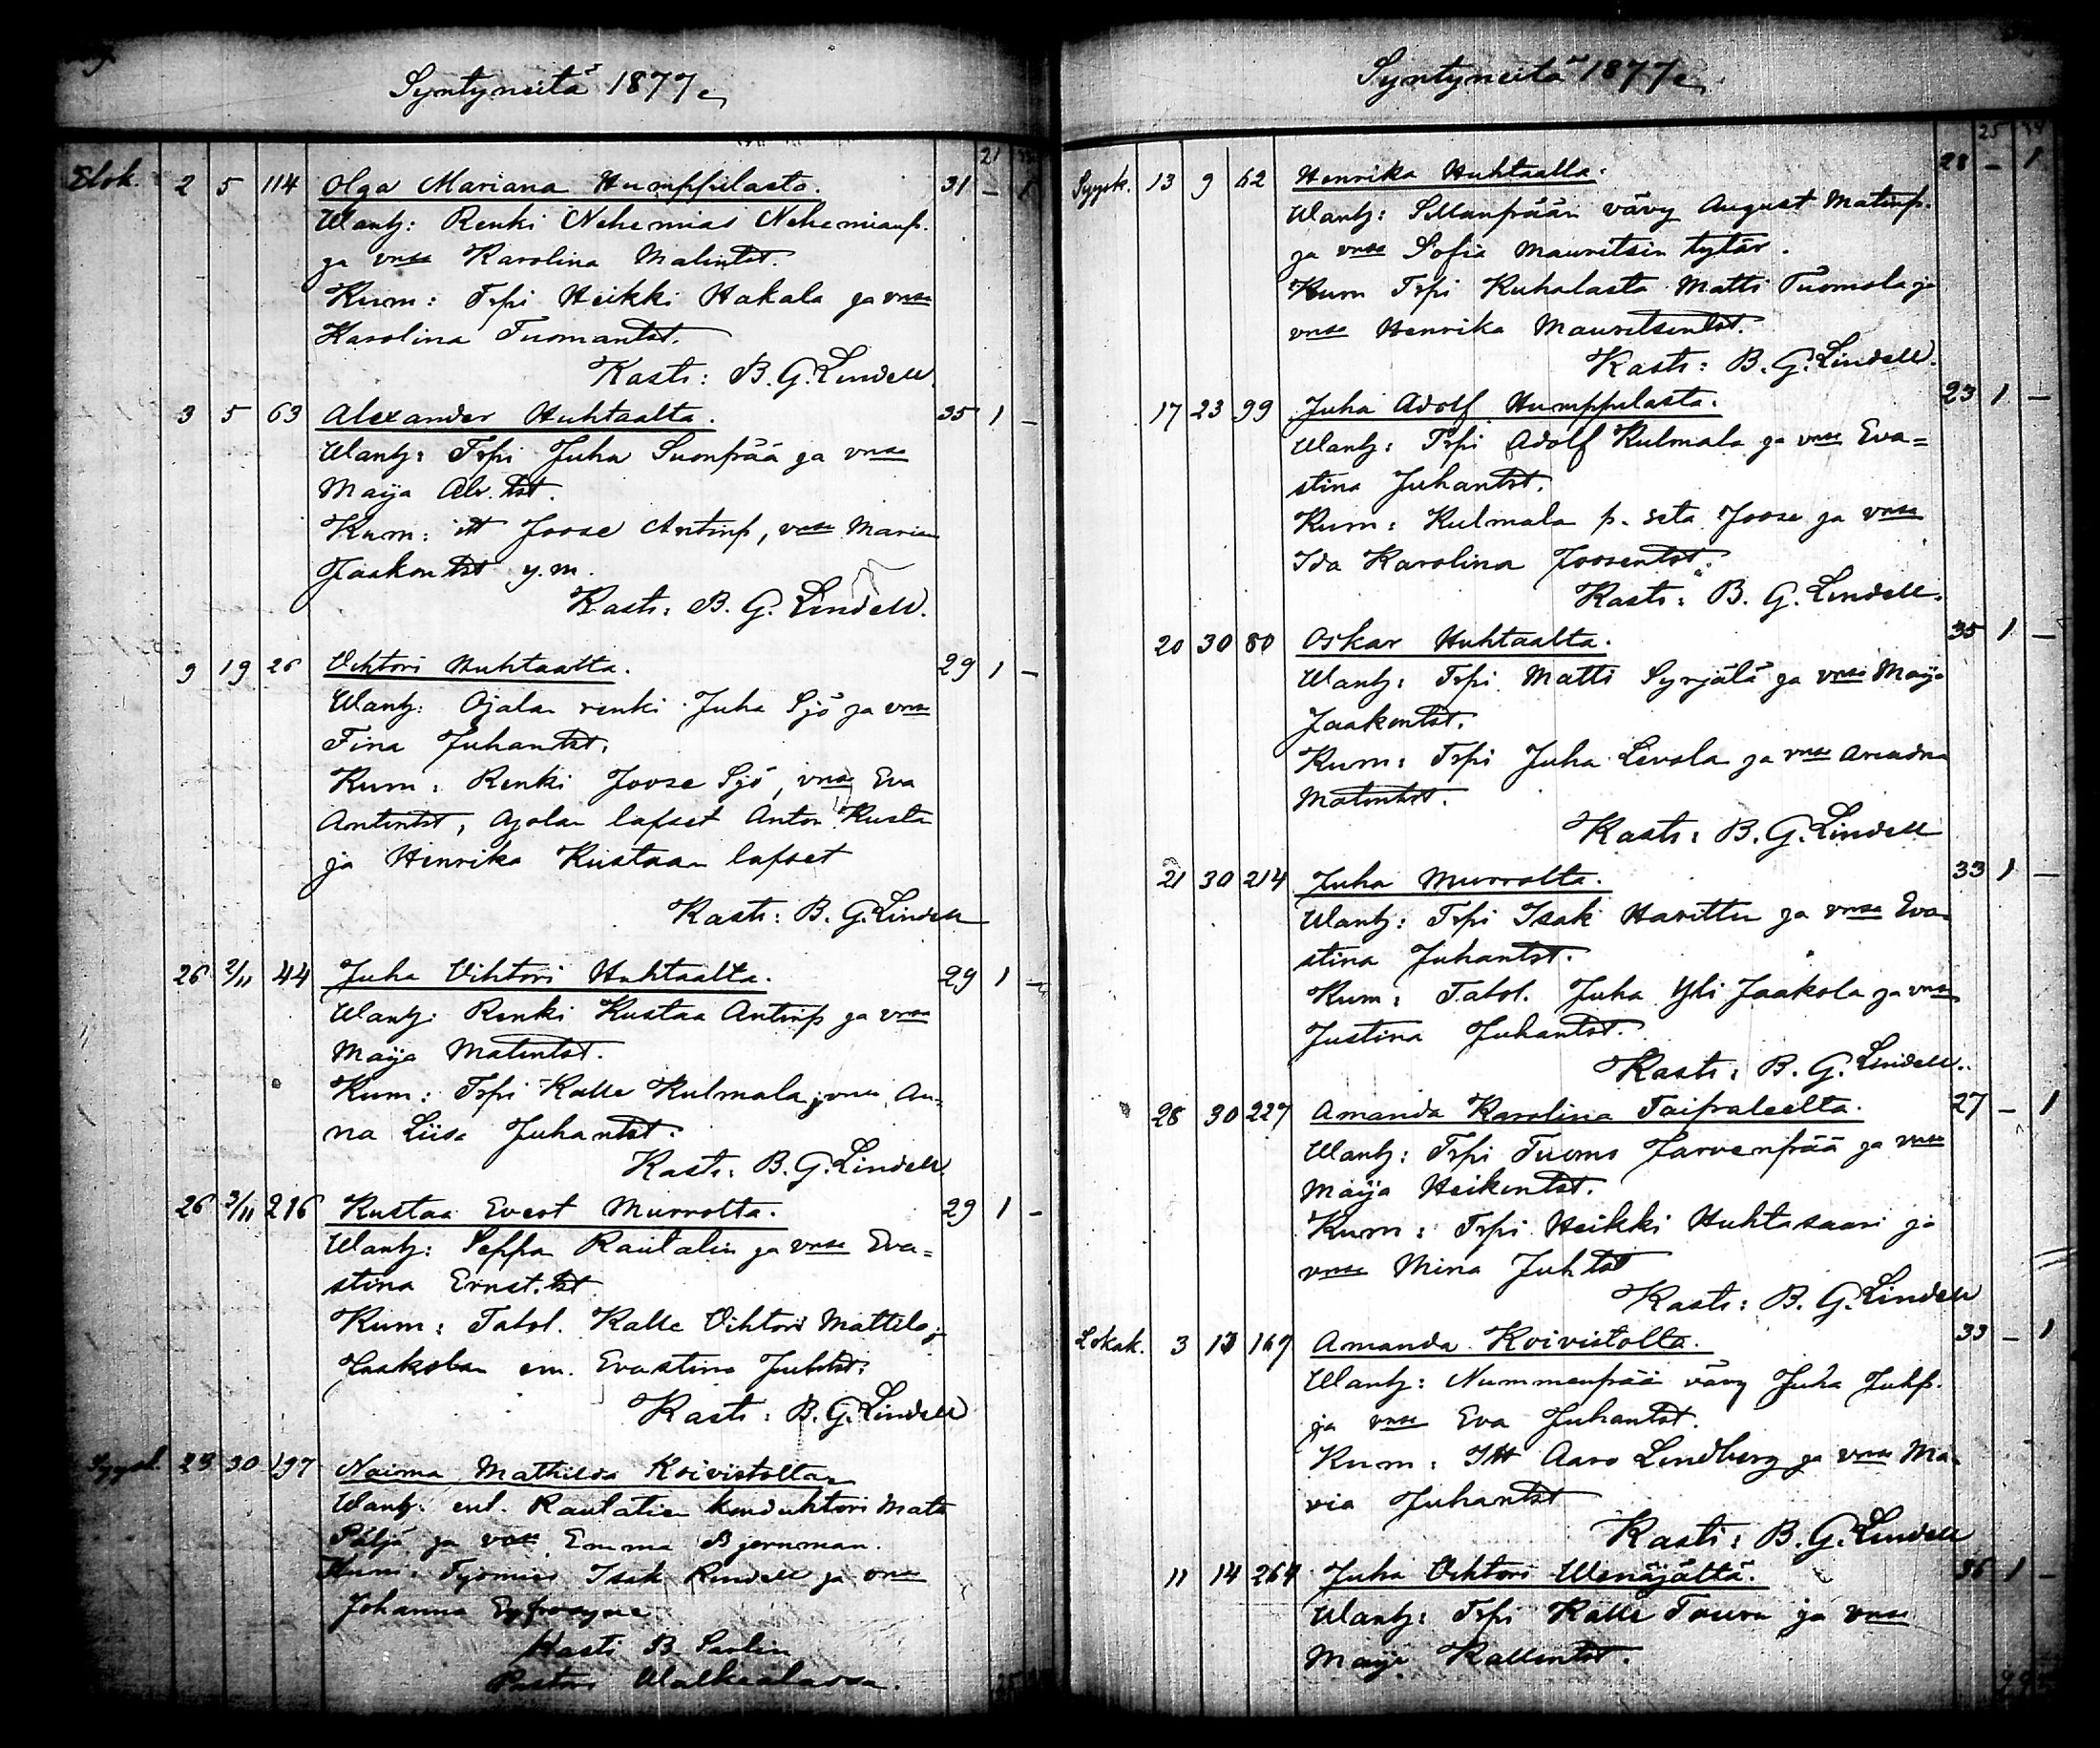 Syntyneitä 1877
21
Elok. 2 5 114 Olga Mariana Humppilasta. 31 – 1
Wanh: Renki Nehemias Nehemianp.
ja vmsa Karolina Matintst.
Kum: Trpi Heikki Hakala ja vmsa
Karolina Tuomantst.
Kasti: B. G. Lindell.
3 5 63 Alexander Huhtaalta. 35 1 –
Wanh: Trpi Juha Suonpää ja vmsa
Maija Alx. tst.
Kum: itt Joose Antinp, vmsa Maria
Jaakontst y.m.
Kasti: B. G. Lindell.
9 19 26 Vihtori Huhtaalta. 29 1 –
Wanh: Ojalan renki Juha Sjö ja vmsa
Fina Juhantst.
Kum: Renki Joose Sjö, vmsa Eva
Antintst, Ojalan lapset Anton Kusta
ja Henrika Kustaan lapset
Kasti: B. G. Lindell
26 2/11 44 Juha Vihtori Huhtaalta. 29 1 –
Wanh: Renki Kustaa Antinp ja vmsa
Maija Matintst.
Kum: Trpi Kalle Kulmala ja vmsa An=
na Liisa Juhantst.
Kasti: B. G. Lindell
26 3/11 216 Kustaa Evert Murrolta. 29 1 –
Wanh: Seppä Rautalin ja vmsa Eva=
stina Ernst. tst
Kum: Tatol. Kalle Vihtori Mattila ja
Jaakolan em. Evastina Juhtst.
Kasti: B. G. Lindell
Syysk. 23 30 197 Naima Mathilda Koivistolta
Wanh: ent. Rautatien konduhtori Matts
Päljä ja vmsa Emma Bjernman.
Kum: Työmies Isak Rindell ja vmsa
Johanna
Kasti B
Pastori Walkealassa.
25
Syntyneitä 1877
25
Syysk. 13 9 62 Henrika Huhtaalta. 28 – 1
Wanh: Sillanpään vävy August Matinp.
ja vmsa Sofia Mauritsin tytär.
Kum Trpi Kuhalasta Matti Tuomola ja
vmsa Henrika Mauritsintst.
Kasti: B. G. Lindell.
17 23 99 Juha Adolf Humppilasta. 23 1 –
Wanh: Trpi Adolf Kulmala ja vmsa Eva=
stina Juhantst.
Kum: Kulmala p. sta Joose ja vmsa
Ida Karolina Joosentst.
Kasti: B. G. Lindell.
20 30 80 Oskar Huhtaalta. 35 1 –
Wanh: Trpi Matti Syrjälä ja vmsa Maija
Jaakontst.
Kum: Trpi Juha Levola ja vmsa Ariadna
Matintst.
Kasti: B. G. Lindell
21 30 214 Juha Murrolta. 33 1 –
Wanh: Trpi Isak Harittu ja vmsa Eva=
stina Juhantst.
Kum: Tatol. Juha Yli Jaakola ja vmsa
Justina Juhantst.
Kasti: B. G. Lindell.
28 30 227 Amanda Karolina Taipaleelta. 27 – 1
Wanh: Trpi Tuomo Jarvenpää ja vmsa
Maija Heikintst.
Kum: Trpi Heikki Huhtasaari ja
vmsa Mina Juhtst
Kasti: B. G. Lindell
Lokak. 3 13 169 Amanda Koivistolta. 33 – 1
Wanh: Nummenpää vävy Juha Juhp.
ja vmsa Eva Juhantst.
Kum: Itt Aaro Lindberg ja vmsa Ma=
ria Juhantst
Kasti: B. G. Lindell
11 14 264 Juha Vihtori Wenäjältä. 36 1 –
Wanh: Trpi Kalle Touru ja vmsa
Maija Kallentst.